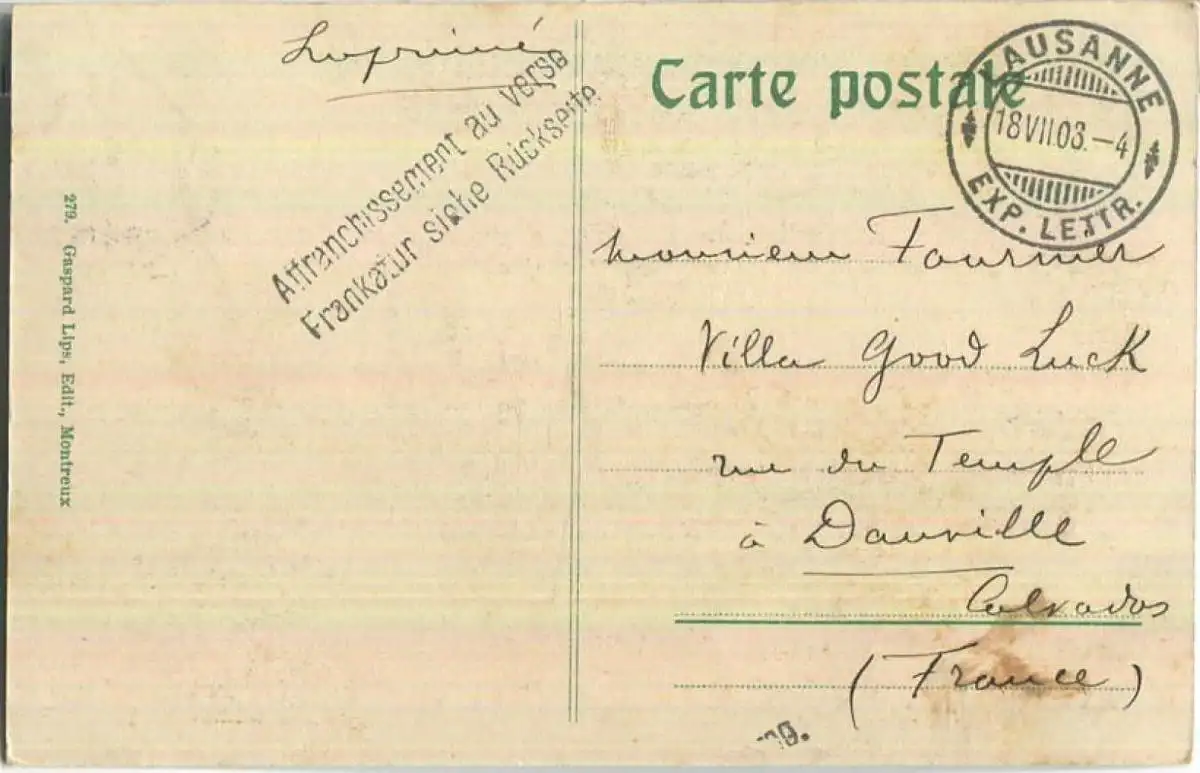 Imprimé
Affranchissement au verso
Frankatur siehe Rückseite
279. Gaspard Lips, Edit., Montreux
Carte postale
LAUSANNE
18 VII.08.–4
EXP. LETTR.
Monsieur Fournier
Villa Good Luck
rue du Temple
à Dauville
Calvados
(France)